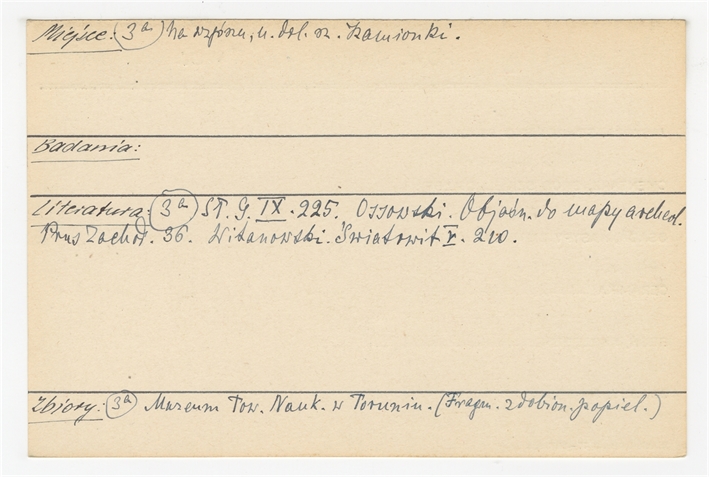 Miejsce: 3a Na wzgórzu, n. dol. rz. Kamionki.
Badania:
Literatura: 3a Sł. G. IX. 225. Ossowski. Objaśn. do mapy archeol.
Prus Zachod. 36. Witanowski. Światowit V. 210.
Zbiory: 3a Museum Tow. Nauk. w Toruniu. (Fragm. zdobion. popiel.)